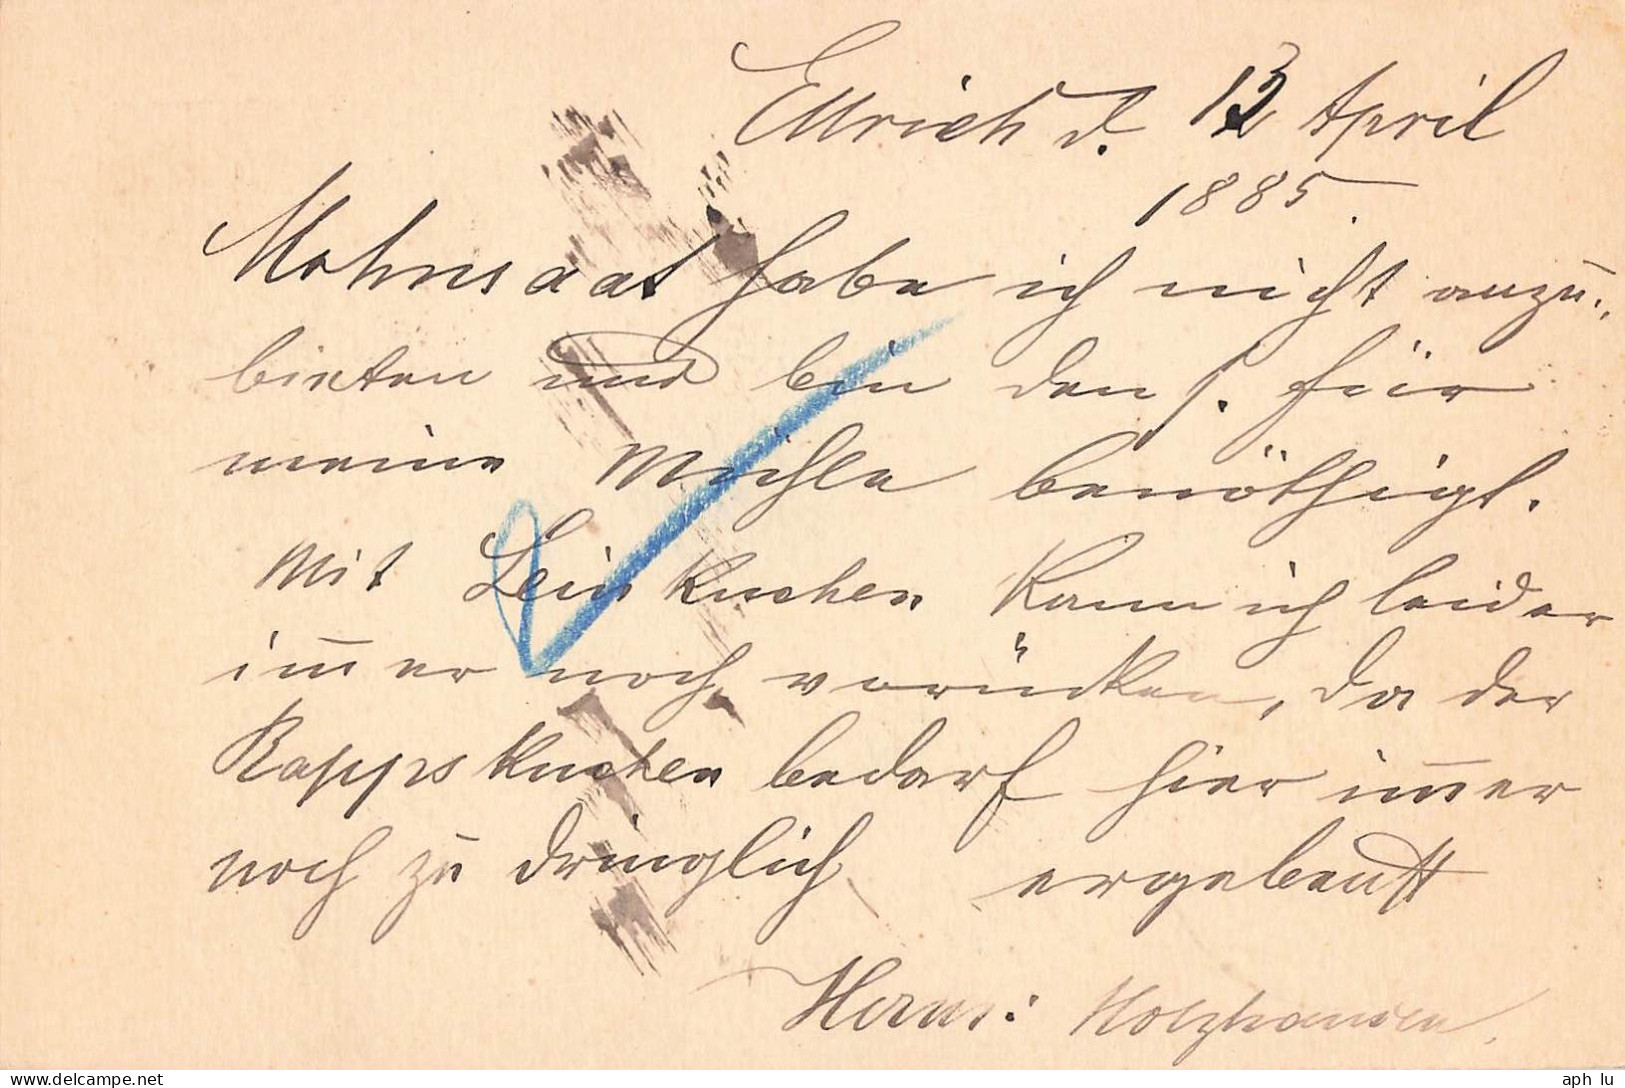 Ellrich d. 13 April
1885.
Mohnsaat habe ich nicht anzu,
bieten und bin den s. für
meine Mühle benöthigt.
Mit Leinkuchen kann ich leider
im̄er noch vorücken, da der
Rappskuchen bedarf hier im̄er
noch zu dringlich ergebenst
Herm: Holzhausen.
aph_lu